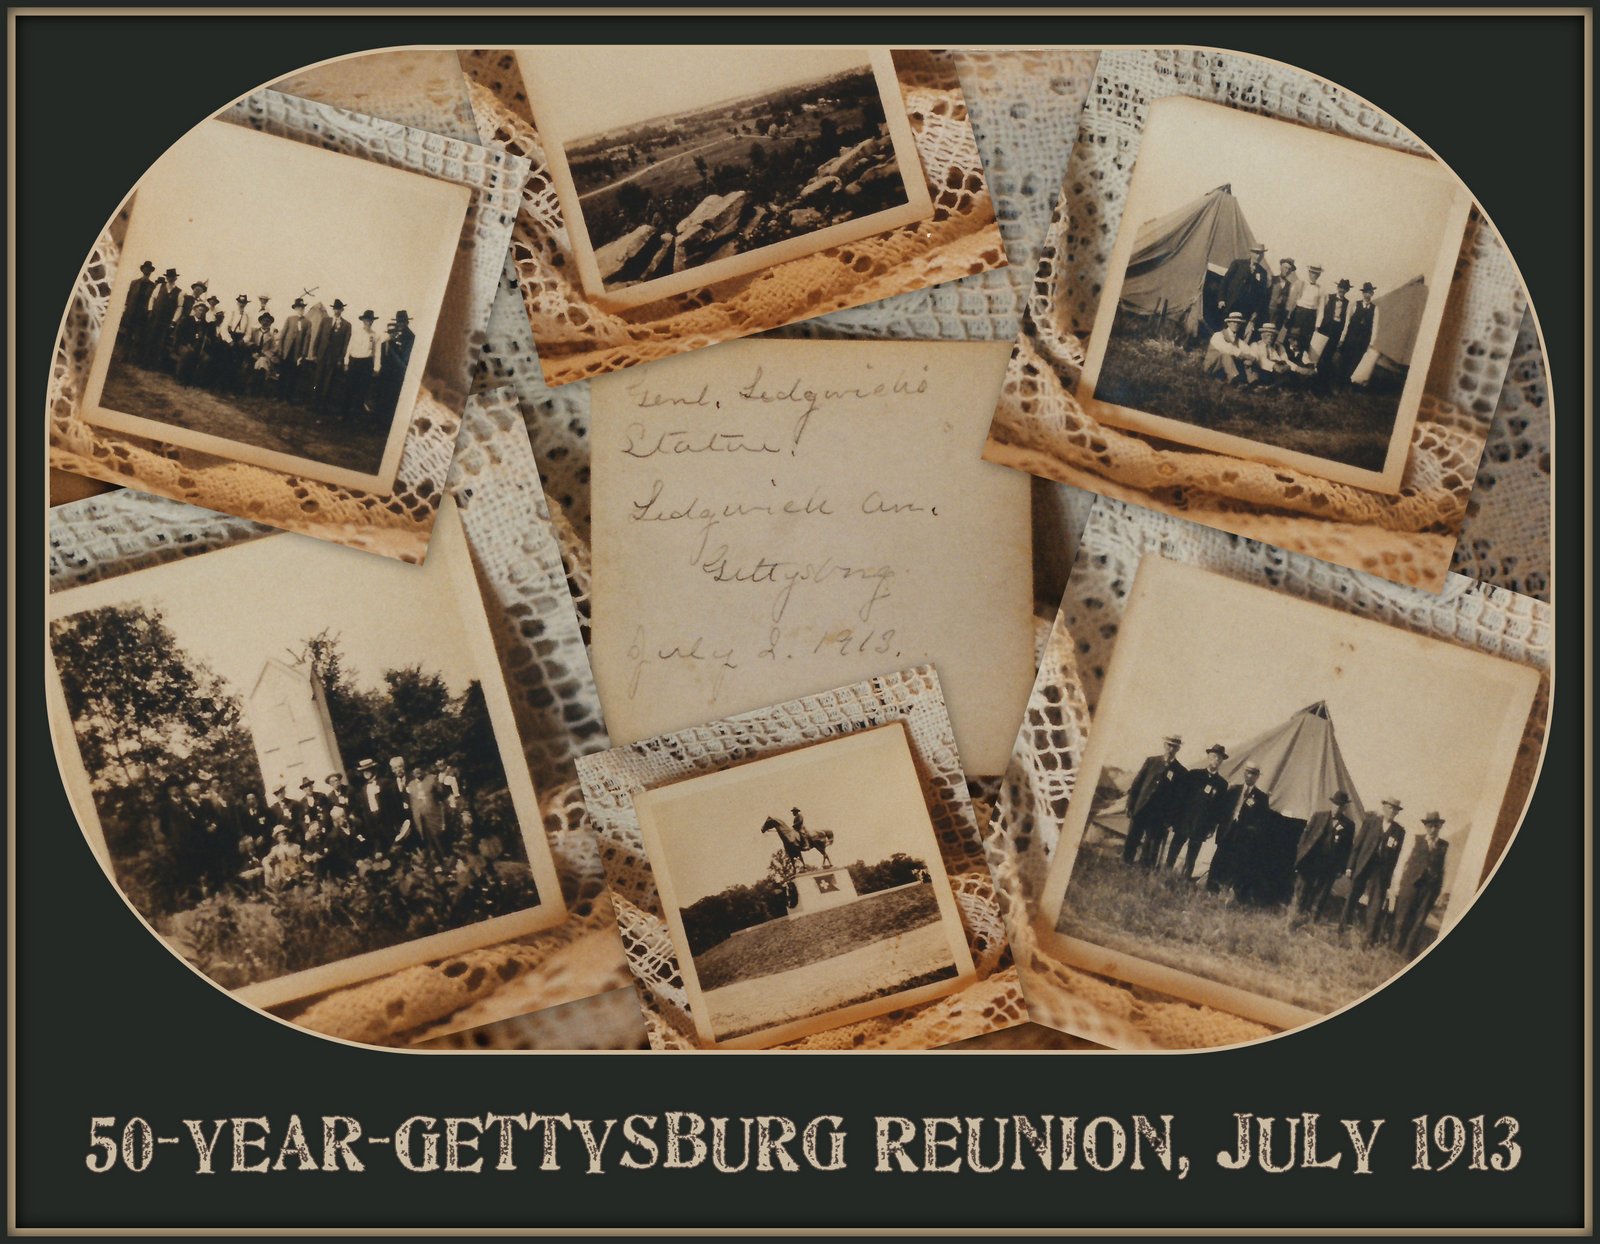 Genl. Sedgwick's
Statue.
Sedgwick Av.
Gettysburg
July 2. 1913.
50-YEAR-GETTYSBURG REUNION, JULY 1913